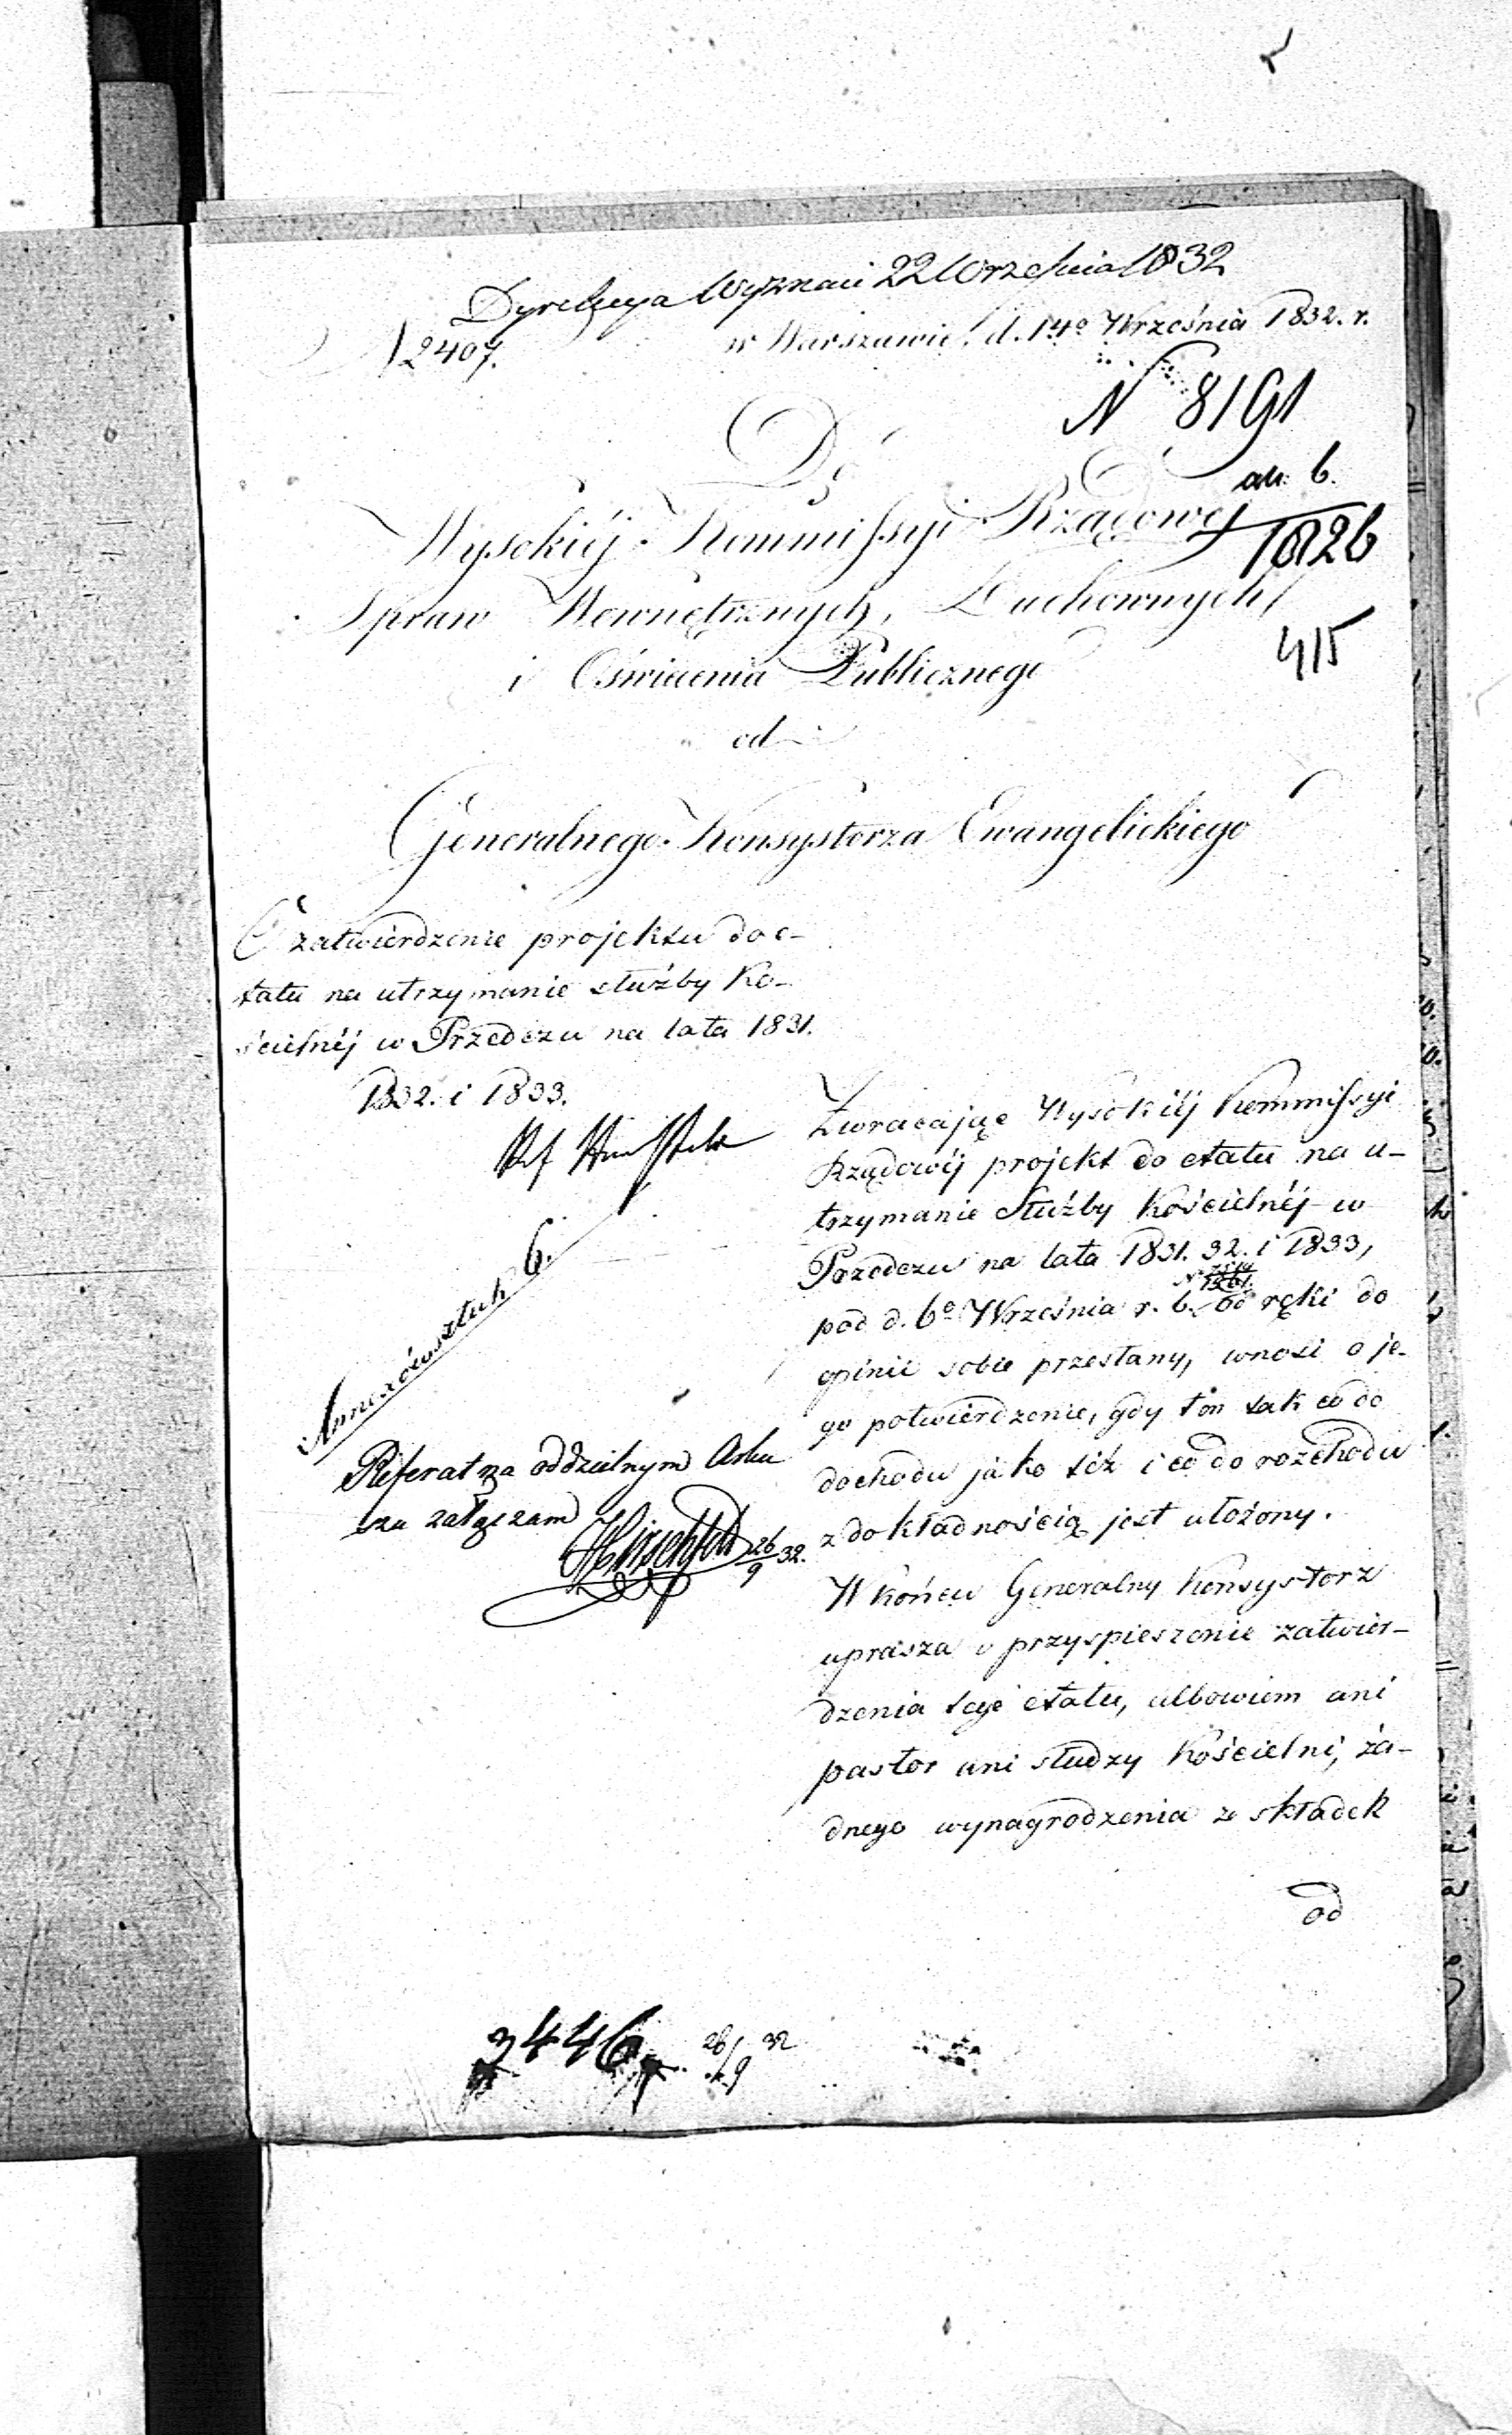 Dyrekcya Wyznań 22 Września 1832
N 2407.
w Warszawie d. 14º Września 1832. r.
N 8191
Do
Wysokiéj Kommissyi Rządowéj
ak. 6.
1826
Spraw Wewnętrznych, Duchownych
i Oświecenia Publicznego
415
od
Generalnego Konsystorza Ewangelickiego
O zatwierdzenie projektu do e-
tatu na utrzymanie służby Ko-
ścielnéj w Przedczu na lata 1831.
1832. i 1833.
Ref
Annexów sztuk 6.
Referat na oddzielnym Arku
szu załączam
Hirschfeld 26/9 32.
Zwracając Wysokiéj Kommissyi
Rządowéj projekt do etatu na u-
trzymanie Służby Kościelnéj w
Przedczu na lata 1831. 32. i 1833,
pod d. 6º Września r. b. od ręki do
opinii sobie przesłany, wnosi o je-
go potwierdzenie, gdy ten tak co do
dochodu jako téż i co do rozchodu
z dokładnością jest ułożony.
W końcu Generalny Konsystorz
uprasza o przyspieszenie zatwier-
dzenia tegó etatu, albowiem ani
pastor ani słudzy Kościelni, ża-
dnego wynagrodzenia ze składek
od
3446. 26/9 32